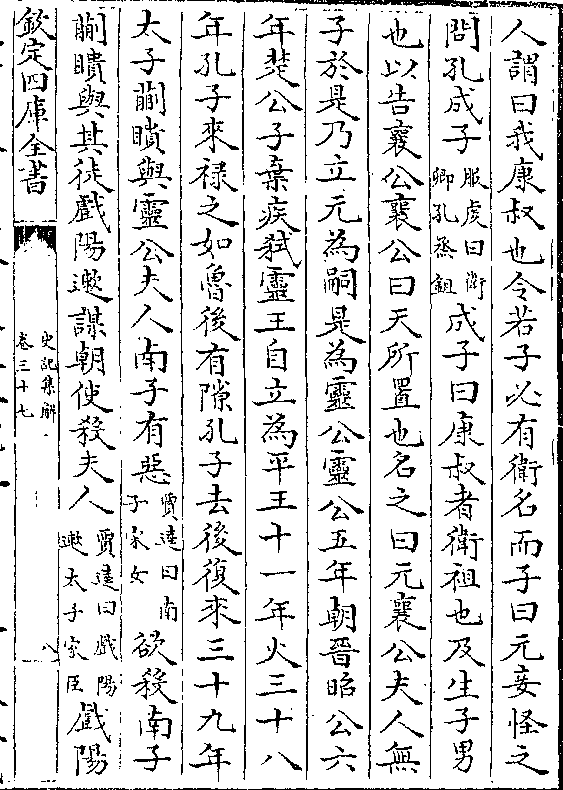 人謂曰我康叔也令若子必有衛名而子曰元妾怪之
問孔成子服虔曰衛卿孔烝鉏成子曰康叔者衛祖也及生子男
也以告襄公襄公曰天所置也名之曰元襄公夫人無
子於是乃立元為嗣是為靈公靈公五年朝晉昭公六
年楚公子棄疾弑靈王自立為平王十一年火三十八
年孔子來禄之如魯後有隙孔子去後復來三十九年
太子蒯聵與靈公夫人南子有惡賈逵曰南子宋女欲殺南子
蒯聵與其徒戲陽遬謀朝使殺夫人賈逵曰戲陽遬太子家臣戲陽
欽定四庫全書
史記集解
卷三十七
八